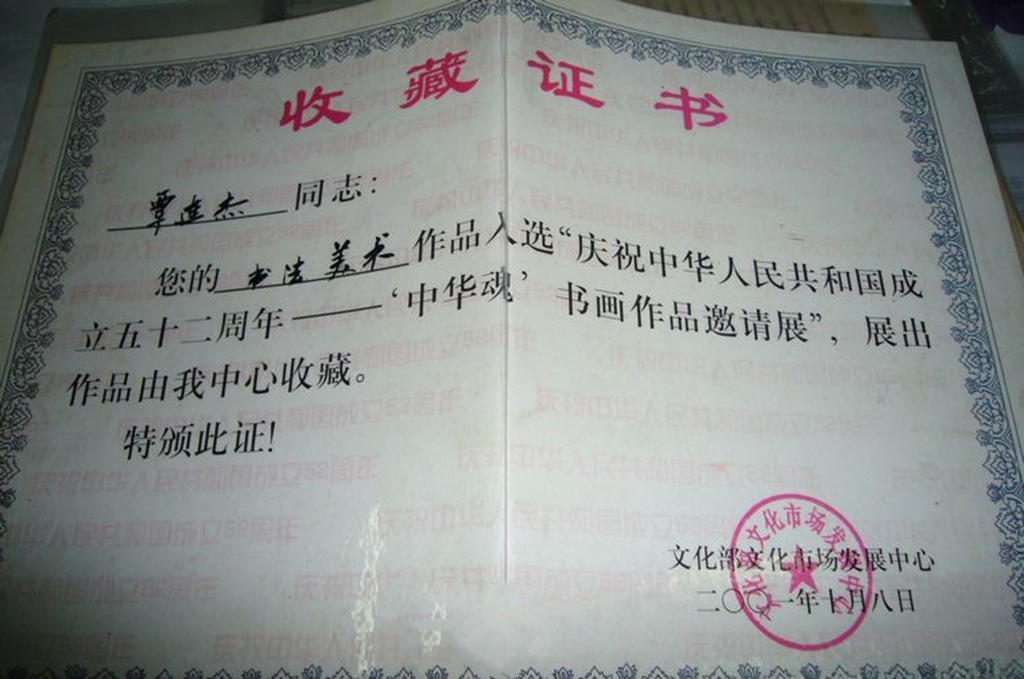 收藏证书
覃连杰同志：
您的书法美术作品入选“庆祝中华人民共和国成
立五十二周年——‘中华魂’书画作品邀请展”，展出
作品由我中心收藏。
特颁此证！
文化部文化市场发展中心
二〇〇一年十月八日
文化部文化市场发展中心
庆祝中华人民共和国成立52周年